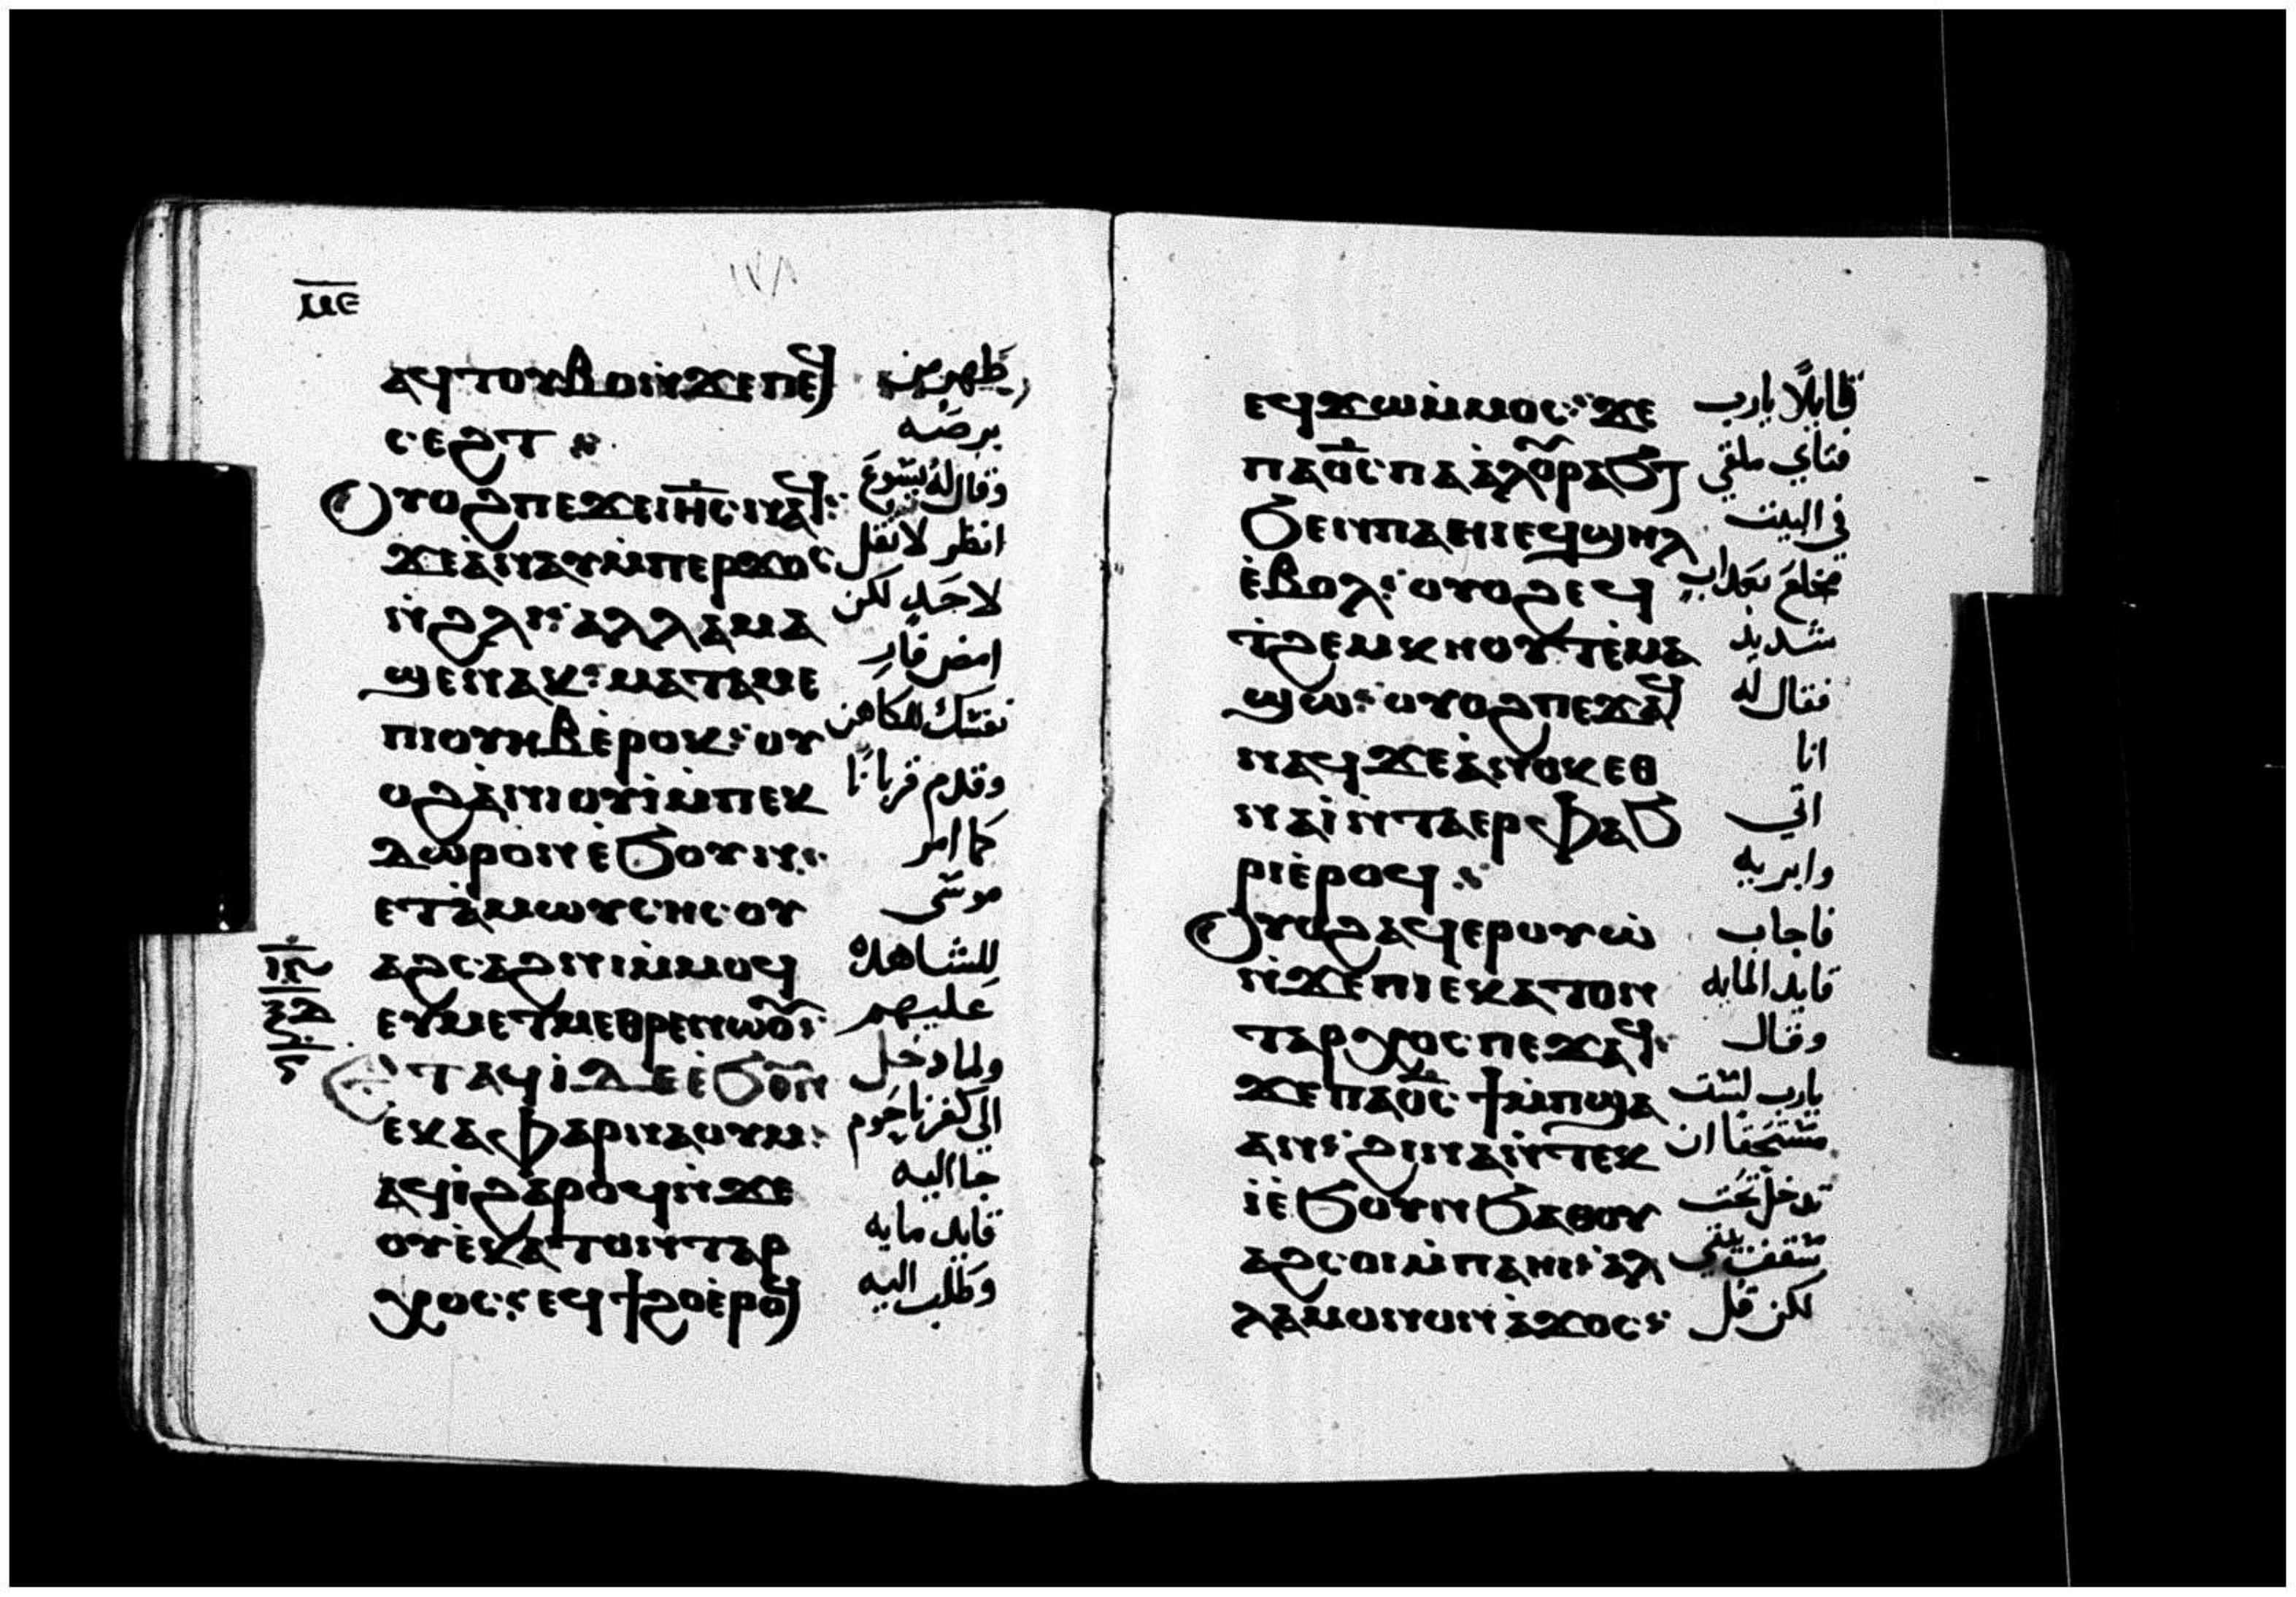 ⲙⲉ
١٢٨
ⲁϥⲧⲟⲩⲃⲟⲛϫⲉⲡⲉϥ طهر من
ⲥⲉϩⲧ ⁘ برصه
ⲟⲩⲟϩⲡⲉϫⲉⲓⲏ̅ⲥ̅ⲛⲁϥ: وقال له يسوع
ϫⲉⲁ̀ⲛⲁⲩⲙ̀ⲡⲉⲣϫⲟⲥ انظر لا تقل
ⲛ̀ϩⲗⲓ: ⲁⲗⲗⲁⲙⲁ لاحد لكن
ϣⲉⲛⲁⲕ: ⲙⲁⲧⲁⲙⲉ امض فار
ⲡⲓⲟⲩⲏⲃⲉ̀ⲣⲟⲕ: ⲟⲩ نفسك للكاهن
ⲟϩⲁ̀ⲛⲓⲟⲩⲓ̀ⲙ̀ⲡⲉⲕ وقدم قربانًا
ⲇⲱⲣⲟⲛⲉ̀ϧⲟⲩⲛ: كما امر
ⲉⲧⲁ̀ⲙⲱⲩⲥⲏⲥⲟⲩ موسى
ⲁϩⲥⲁϩⲛⲓⲙ̀ⲙⲟϥ للشاهدة
ⲉⲩⲙⲉⲧⲙⲉⲑⲣⲉⲛⲱⲟⲩ: عليهم
ⲉⲧⲁϥⲓ̀ⲇⲉⲉ̀ϧⲟⲩⲛ ولما دخل
ⲉⲕⲁⲫⲁⲣⲛⲁⲟⲩⲙ: الى كفرناحوم
ⲁϥⲓ̀ϩⲁⲣⲟϥⲛ̀ϫⲉ جا اليه
ⲟⲩⲉ̀ⲕⲁⲧⲟⲛⲧⲁⲣ قايد مايه
ⲭⲟⲥ: ⲉϥϯϩⲟⲉ̀ⲣⲟϥ وطلب اليه
ⲉϥϫⲱⲙ̀ⲙⲟⲥ: ϫⲉ قايلًا يارب
ⲡⲁⲟ̅ⲥ̅ⲡⲁⲁ̀ⲗⲟⲩⲣⲁϧⲧ فتاي ملقي
ϧⲉⲛⲡⲁⲏⲓⲉϥϣⲏⲗ في البيت
ⲉ̀ⲃⲟⲗ: ⲟⲩⲟϩⲉϥ مخلع بعداب
ⲧ̀ϩⲉⲙⲕⲏⲟⲩⲧⲉ̀ⲙⲁ شديد
ϣⲱ: ⲟⲩⲟϩⲡⲉϫⲁϥ فقال له
ⲛⲁϥϫⲉⲁ̀ⲛⲟⲕⲉⲑ انا
ⲛⲁⲓ̀ⲛ̀ⲧⲁⲉⲣⲫⲁϧ اتي
ⲣⲓⲉ̀ⲣⲟϥ ⁘ وابريه
ⲟⲩⲟϩⲁϥⲉⲣⲟⲩⲱ̀ فاجاب
ⲛ̀ϫⲉⲡⲓⲉⲕⲁⲧⲟⲛ قايد المايه
ⲧⲁⲣⲭⲟⲥⲡⲉϫⲁϥ: وقال
ϫⲉⲡⲁⲟ̅ⲥ̅ϯⲙ̀ⲡϣⲁ يارب لست
ⲁⲛ: ϩⲓⲛⲁⲛ̀ⲧⲉⲕ مستحقا ان
ⲓ̀ⲉ̀ϧⲟⲩⲛϧⲁⲑⲟⲩ تدخل تحت
ⲁϩⲥⲟⲓⲙ̀ⲡⲁⲏⲓ: ⲁⲗ سقف بيتي
ⲗⲁⲙⲟⲛⲟⲛⲁ̀ϫⲟⲥ: لكن قل